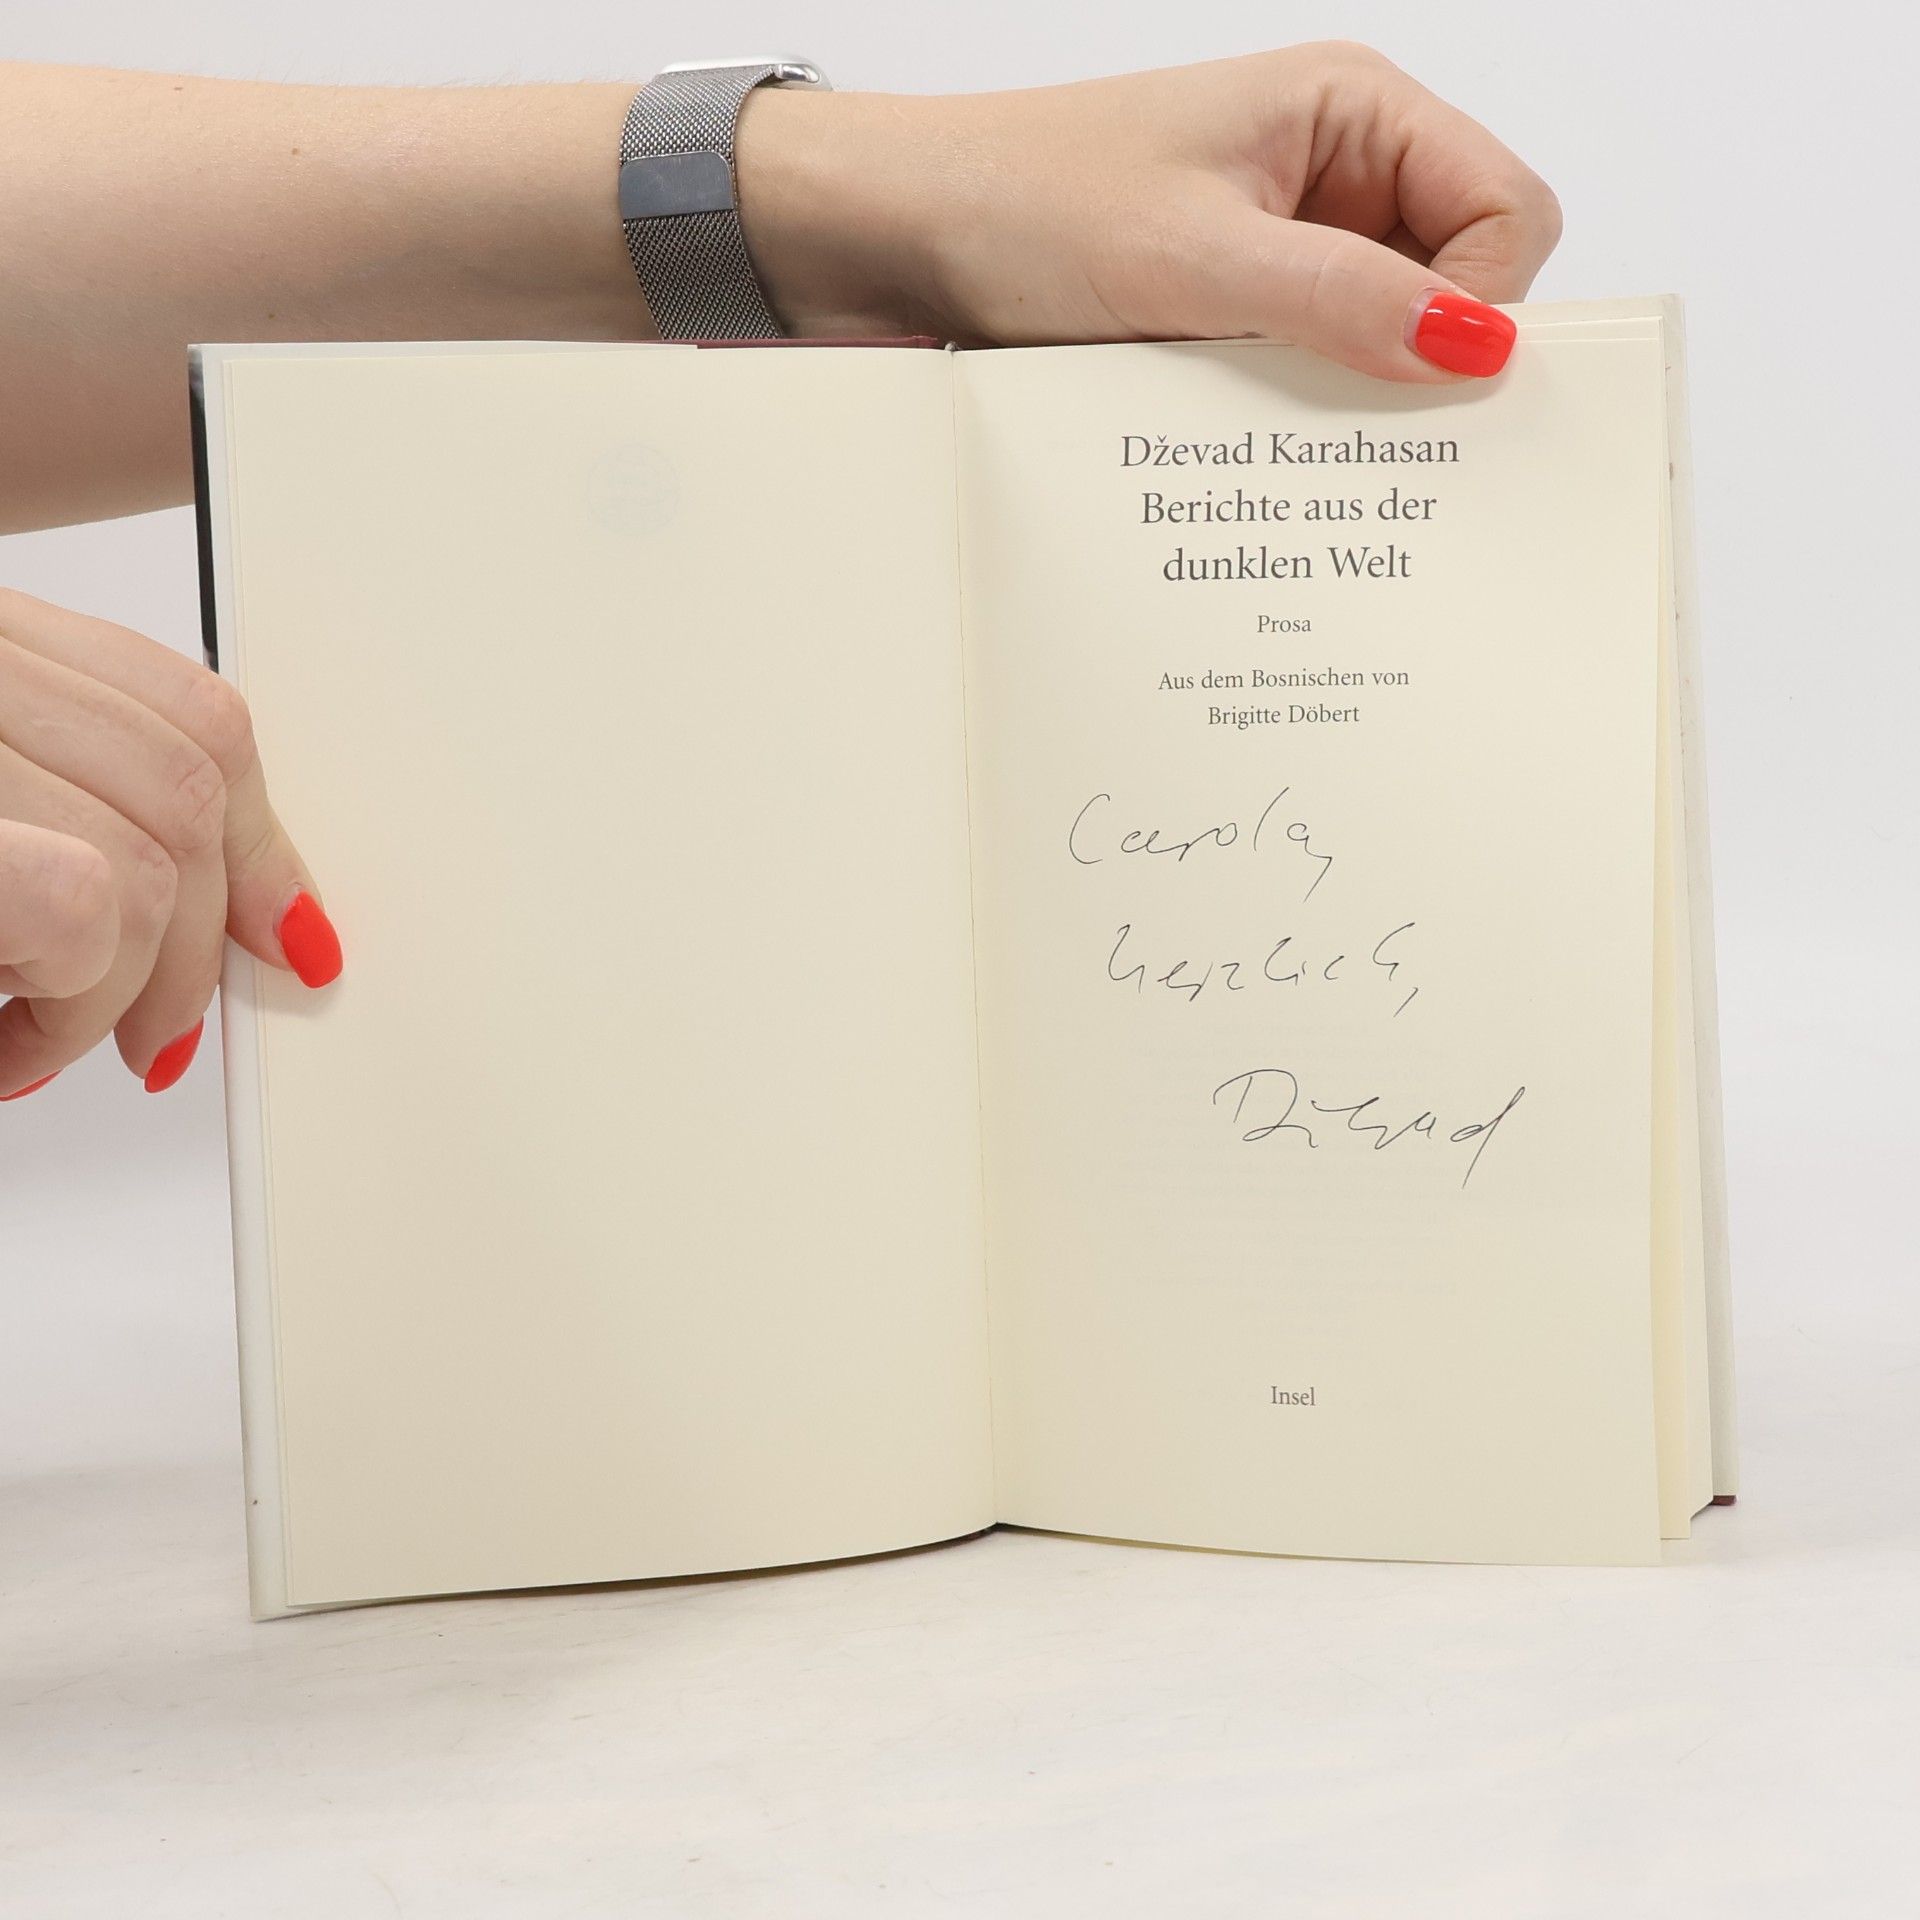 Dževad Karahasan
Berichte aus der
dunklen Welt
Prosa
Aus dem Bosnischen von
Brigitte Döbert
Carola,
herzlich,
Dževad
Insel